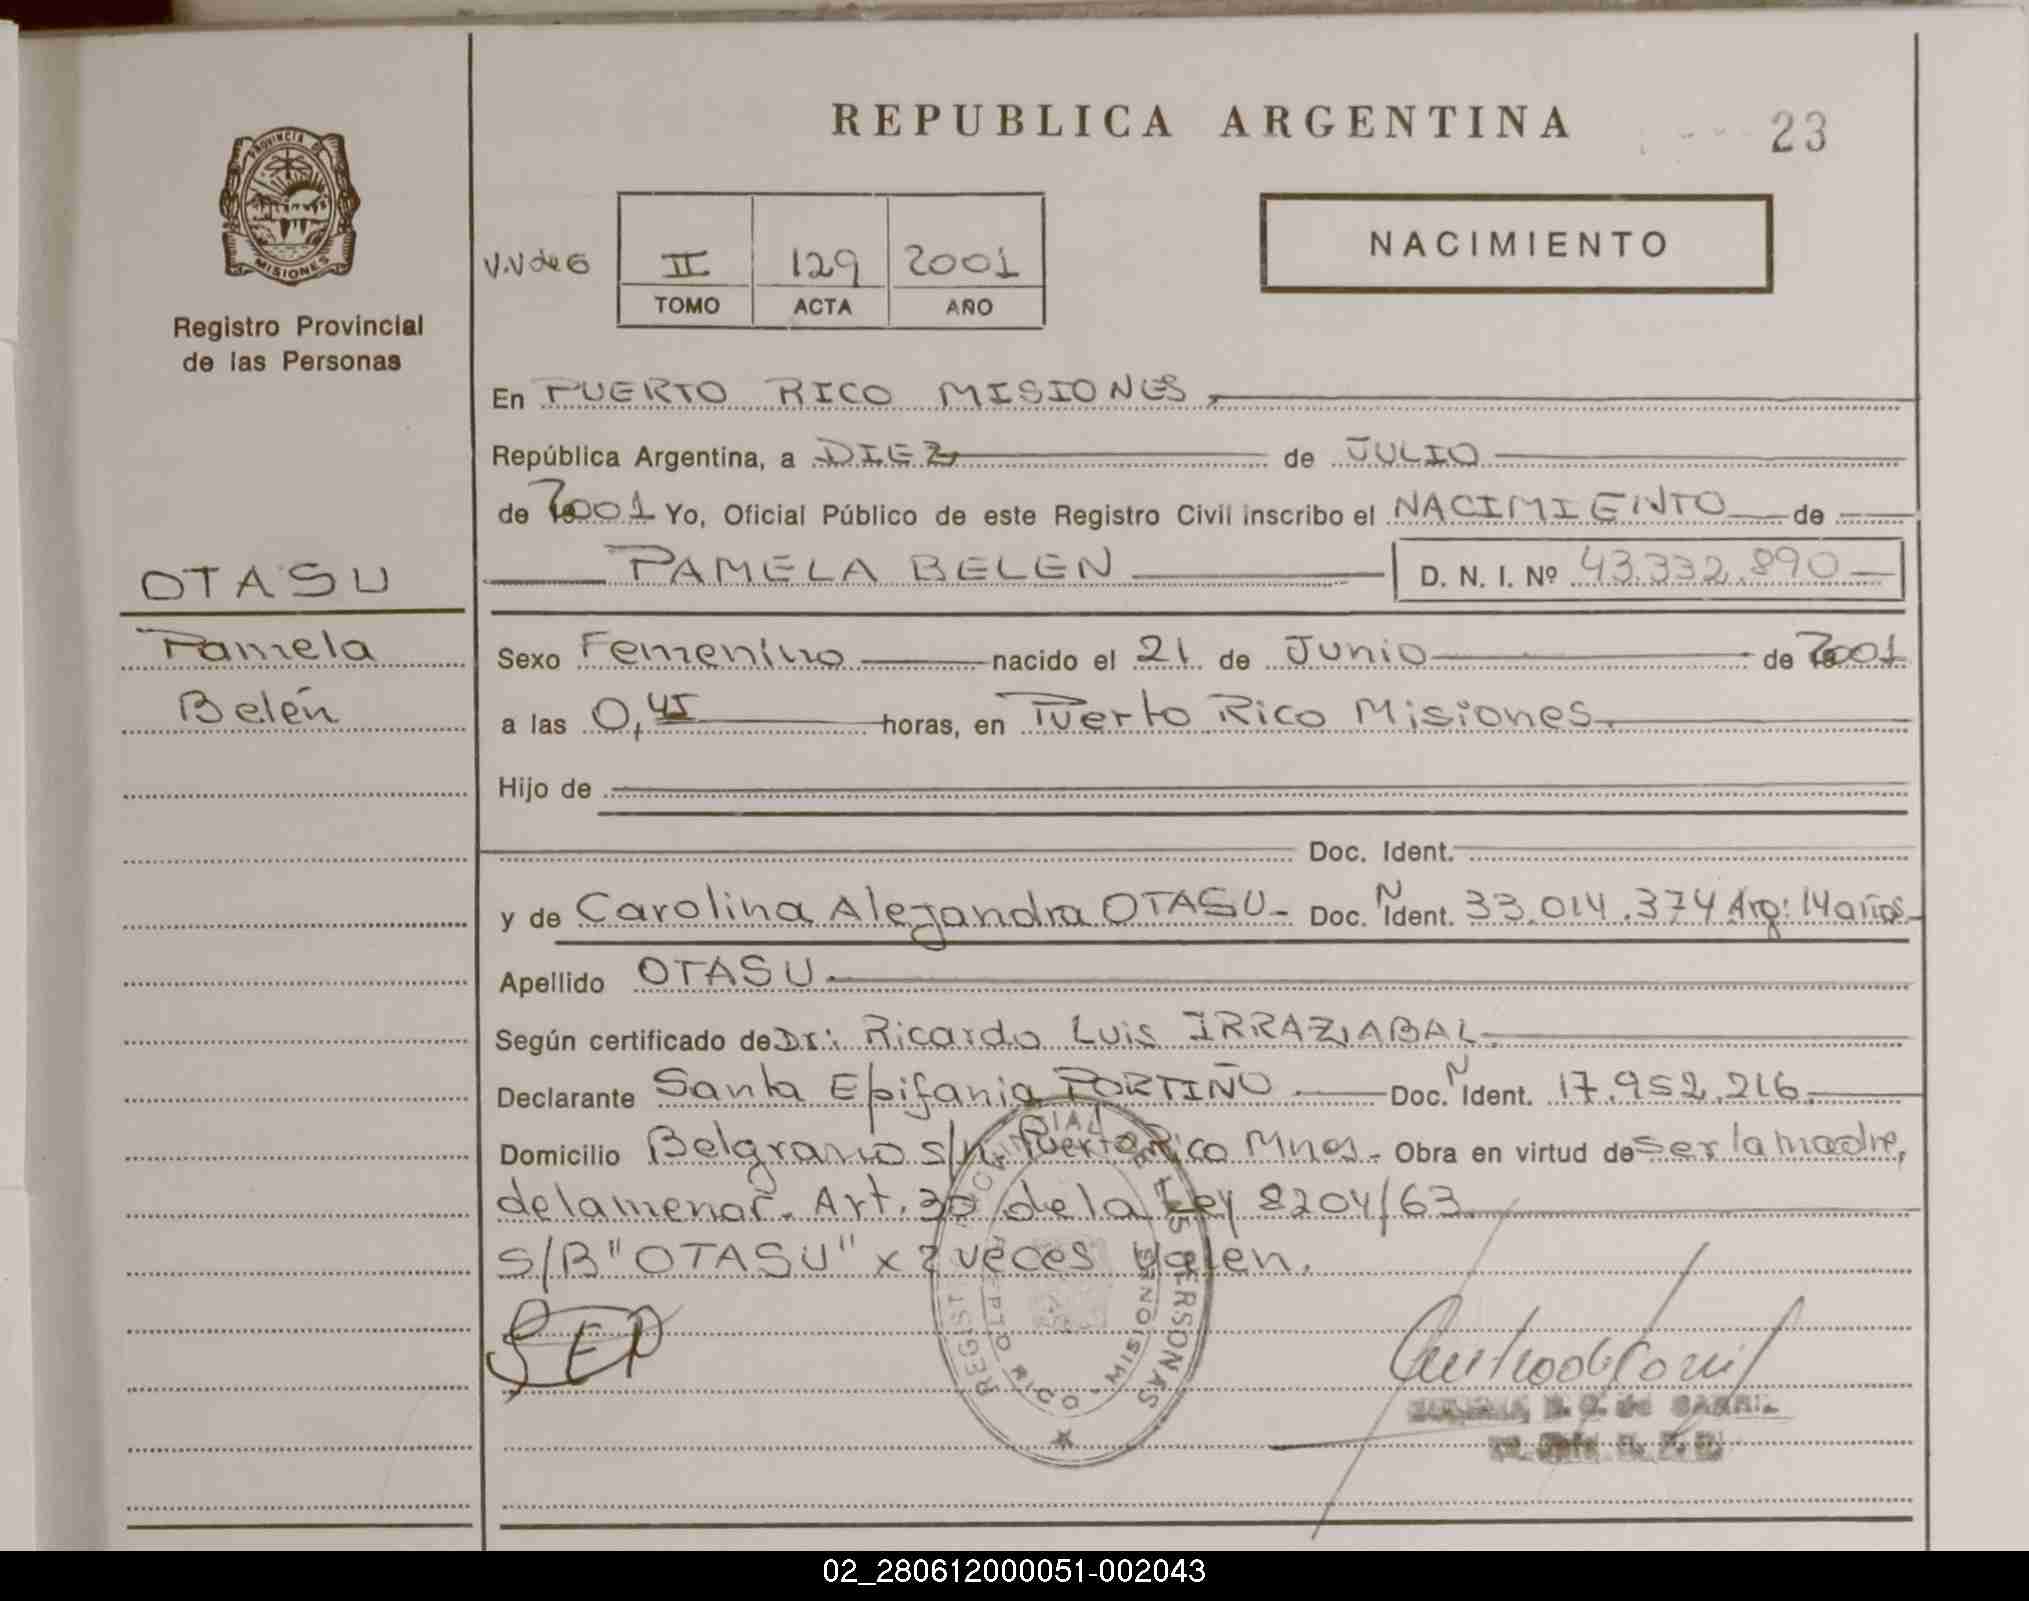 REPUBLICA ARGENTINA
23
PROVINCIA DE
MISIONES
Registro Provincial
de las Personas
V.V de G
II 129 2001
TOMO ACTA AÑO
NACIMIENTO
En PUERTO RICO MISIONES
República Argentina, a DIEZ de JULIO
de 2001 Yo, Oficial Público de este Registro Civil inscribo el NACIMIENTO de
PAMELA BELEN D. N. I. Nº 43.332.890
OTASU
Pamela
Belén
Sexo Femenino nacido el 21 de Junio de 2001
a las 0,45 horas, en Puerto Rico Misiones.
Hijo de
Doc. Ident.
y de Carolina Alejandra OTASU- Doc. N Ident. 33.014.374 Arg: 14 años.
Apellido OTASU.
Según certificado de Dr: Ricardo Luis IRRAZIABAL.
Declarante Santa Epifania PORTIÑO Doc. N Ident. 17.952.216.
Domicilio Belgrano s/n Puerto Rico Mnes.- Obra en virtud de ser la madre,
de la menor. Art. 30 de la Ley 8204/63.
S/B "OTASU" x 2 veces valen.
SEP
PTO RICO - MISIONES
PERSONAS
de CARRIL
02_280612000051-002043